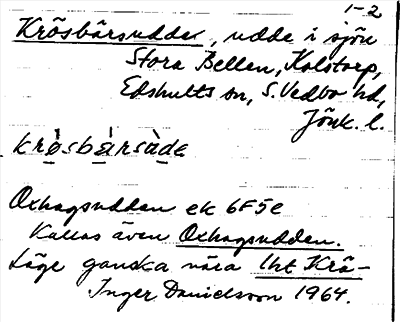 1-2
Krösbärsudde, udde i sjön
Stora Bellen, Kolstorp,
Edshults sn, S. Vedbo hd,
Jönk. l.
krø̀sbæ̀rsàde
Oxhagsudden ek 6F5e
Kallas även Oxhagsudden.
Läge ganska nära lht Krä-
Inger Danielsson 1964.